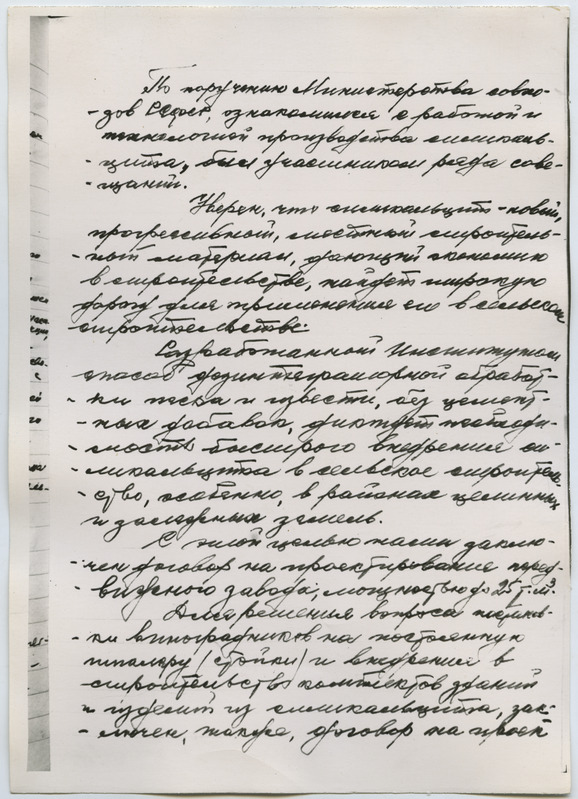 По поручению Министерства совхо-
-зов СССР, ознакомился с работой и
технологией производства силикаль-
-цита, был участником ряда сове-
-щаний.
Уверен, что силикальцит - новый,
прогрессивный, местный строитель-
-ный материал, дающий экономию
в строительстве, найдет широкую
дорогу для применения его в сельском
строительстве.
Разработанной Институтом
способ дезинтеграторной обработ-
-ки песка и извести, без цемент-
-ных добавок, диктует необходи-
-мость быстрого внедрения си-
-ликальцита в сельское строитель-
-ство, особенно, в районах целинных
и залежных земель.
С этой целью нами заклю-
-чен договор на проектирование перед-
-вижного завода, мощностью до 25 т. м³.
Для решения вопроса
-ки виноградников на постоянную
шпалеру (стойки) и внедрения в
строительство комплектов зданий
и изделий из силикальцита, зак-
-лючен, также, договор на проек